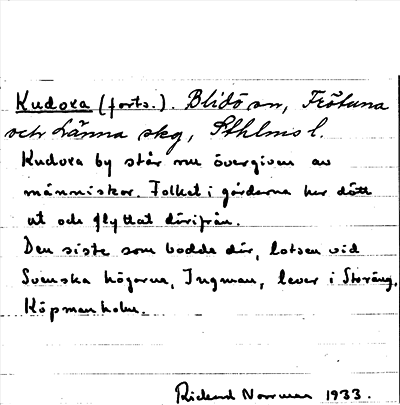 Kudoxa (forts.). Blidö sn, Frötuna
och Länna skg, Sthlms l.
Kudoxa by står nu övergiven av
människor. Folket i gårdarna har dött
ut och flyttat därifrån.
Den siste som bodde där, lotsen vid
Svenska högarna, Ingman, lever i Storäng,
Köpmanholm.
Rickard Norrman 1933.